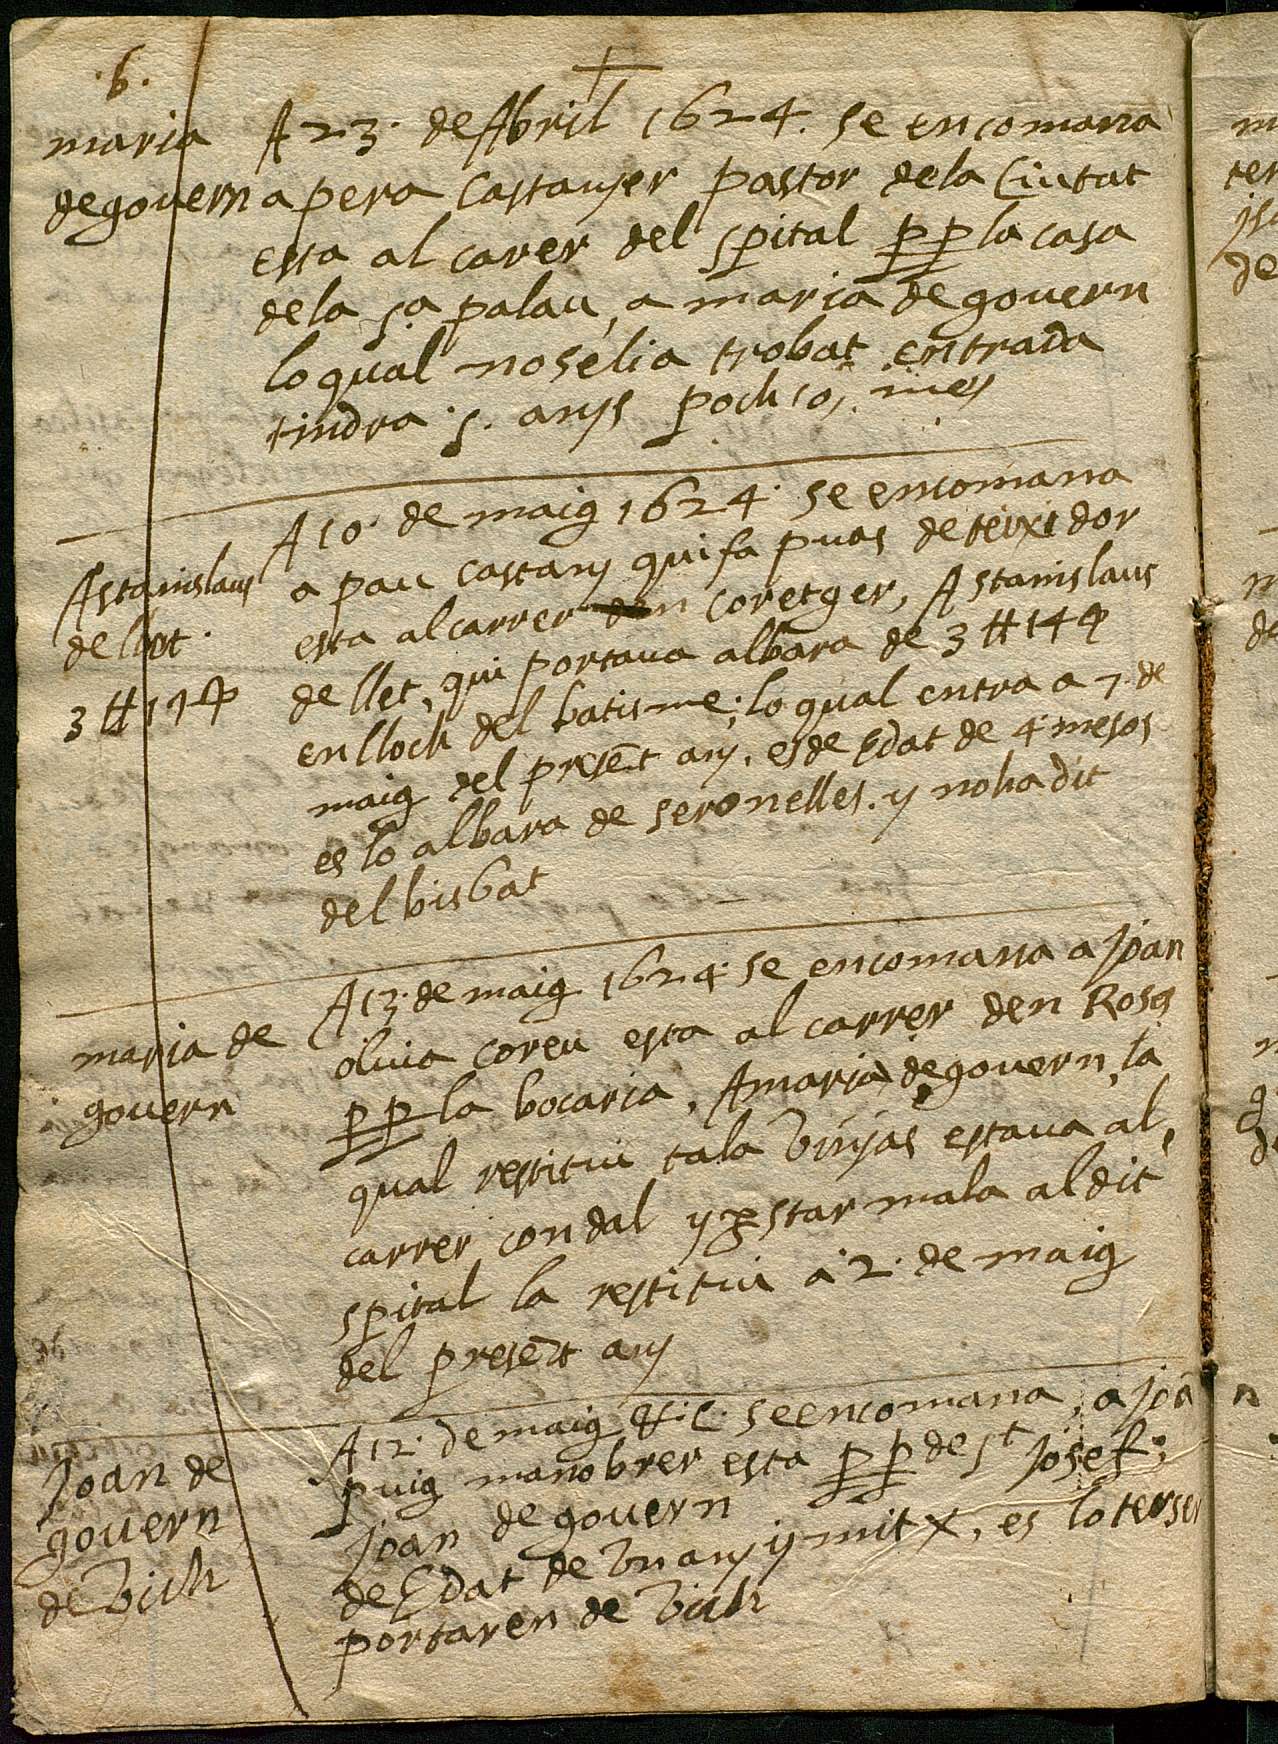 .6.
maria
de govern
A 23. de Abril 1624. se encomana
a pera Castanyer pastor dela Ciutat
esta al carer del spital pp la casa
dela sa palau, a maria de govern
lo qual noselia trobat entrada
tindra .5. anys poch
Astanislaus
de llet.
3 ₶ 14
A 10. de maig 1624. se encomana
a pau Castany qui fa puas de teixidor
esta al carrer den Coretger, Astanislaus
de llet, qui portava albara de 3 ₶ 14
en lloch del batisme; lo qual entra a 7. de
maig del preset any. es de Edat de 4. mesos
es lo albara de seronelles. y noha dit
del bisbat
maria de
govern
A 13. de maig 1624. se encomana a Joan
oliva coreu esta al carrer den Rosa
pp la bocaria, A maria de govern, la
qual restitui tala Vinyas estava al
carrer condal y p star mala al dit
spital la restitui a 12. de maig
del preset any
Joan de
govern
de Vich
A 12. de maig se encomana, a Joa
puig manobrer esta pp de St Josef;
Joan de govern
de Edat de Vn any y mitx, es lo terser
portaren de Vich